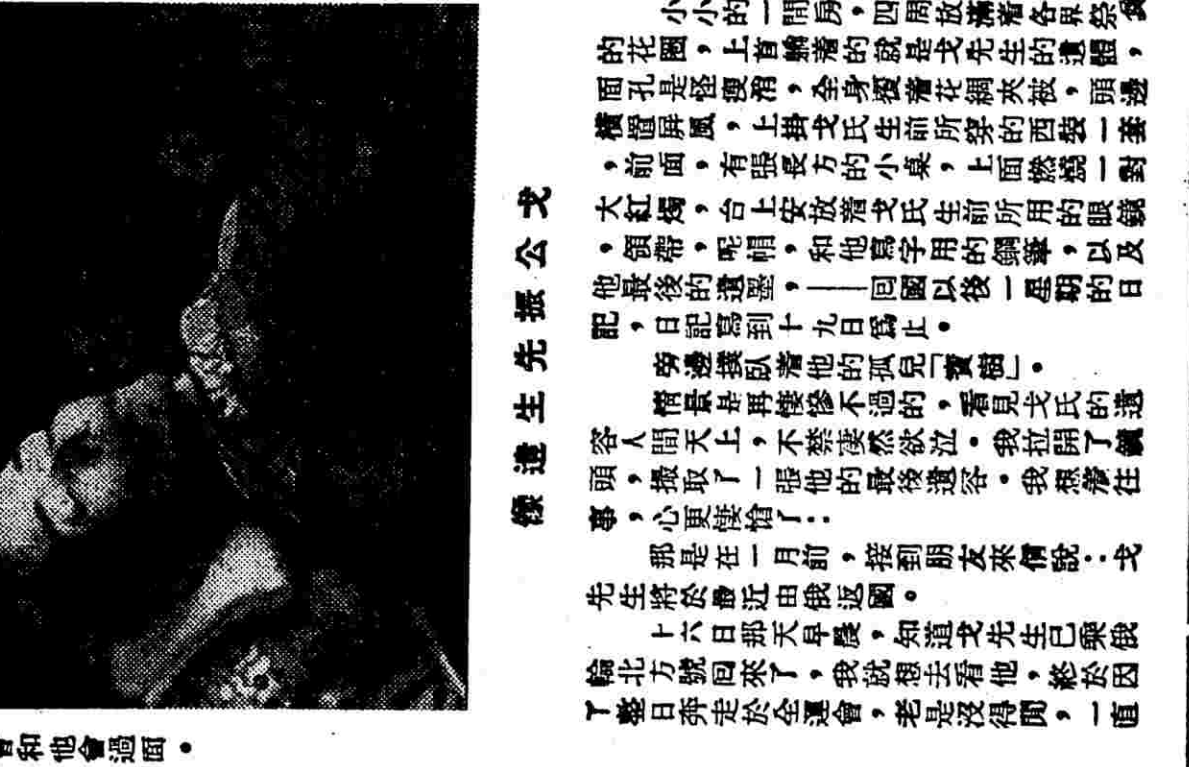 小小的一間房，四周放滿着各界祭奠
的花圈，上首躺着的就是戈先生的遺體，
面孔是怪瘦消，全身覆着花綢夾被，頭邊
橫置屏風，上掛戈氏生前所穿的西裝一套
，前面，有張長方的小桌，上面燃燒一對
大紅燭，台上安放着戈氏生前所用的眼鏡
，領帶，呢帽，和他寫字用的鋼筆，以及
他最後的遺墨，——回國以後一星期的日
記，日記寫到十九日爲止。
旁邊撲臥着他的孤兒「寶樹」。
情景是再悽慘不過的，看見戈氏的遺
容人間天上，不禁淒然欲泣。我拉開了鏡
頭，撮取了一張他的最後遺容。我想着往
事，心更悽愴了：
那是在一月前，接到朋友來信說：戈
先生將於最近由俄返國。
十六日那天早晨，知道戈先生已乘俄
輪北方號回來了，我就想去看他，終於因
了整日奔走於全運會，老是沒得閒，一直
戈公振先生遺像
曾和他會過面。